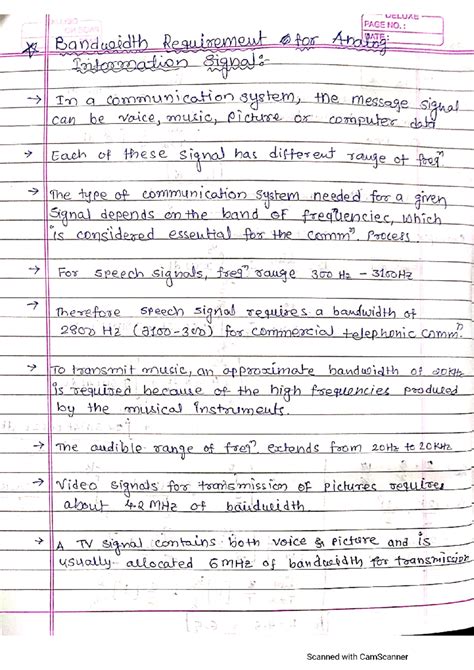 DELUXE
PAGE NO.:
DATE:
Bandwidth Requirement for Analog
Information Signal:-
→ In a communication system, the message signal
can be voice, music, picture or computer data
→ Each of these signal has different range of freqⁿ
→ The type of communication system needed for a given
signal depends on the band of frequencies, which
is considered essential for the commⁿ. Process.
→ For speech signals, freqⁿ range 300 Hz - 3100Hz
→ Therefore speech signal requires a bandwidth of
2800 Hz (3100-300) for commercial telephonic commⁿ.
→ To transmit music, an approximate bandwidth of 20KHz
is required because of the high frequencies produced
by the musical instruments.
→ The audible range of freqⁿ. extends from 20Hz to 20KHz
→ Video signals for transmission of pictures requires
about 4.2 MHz of bandwidth.
→ A TV signal contains both voice & picture and is
usually allocated 6MHz of bandwidth for transmission
Scanned with CamScanner